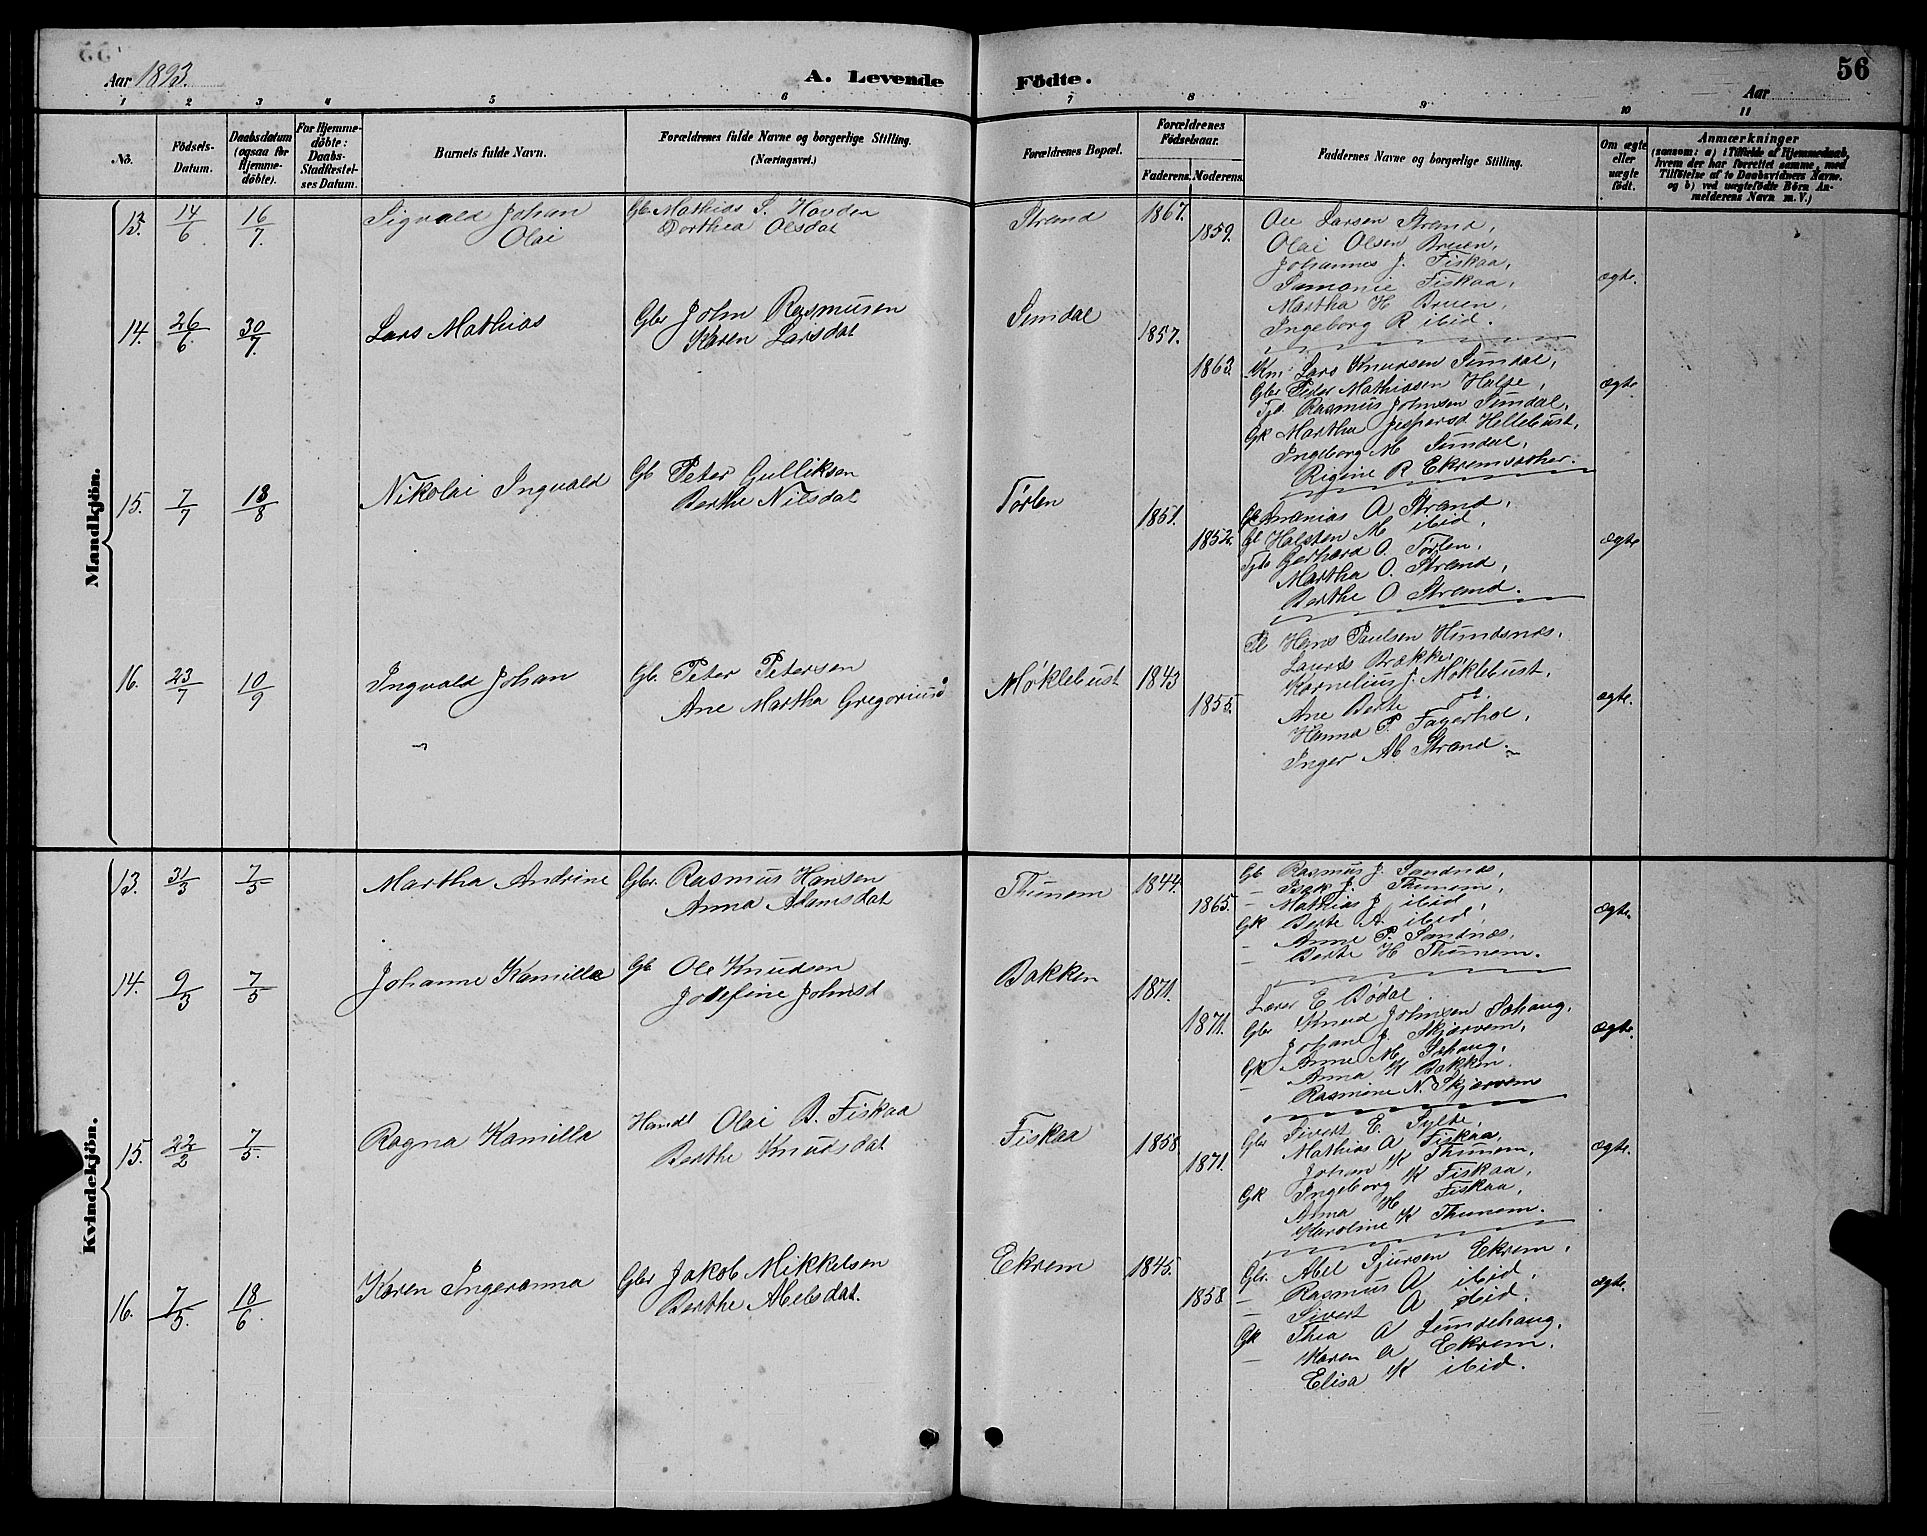 Aar 1893.
A. Levende
Födte.
Aar
56
1 2 3 4 5 6 7 8 9 10 11
No.
Födsels-
Datum.
Daabsdatum
(ogsaa for
Hjemme-
döbte).
For Hjemme-
döbte:
Daabs-
Stadfæstel-
ses Datum.
Barnets fulde Navn.
Forældrenes fulde Navne og borgerlige Stilling.
(Næringsvei.)
Forældrenes Bopæl.
Forældrenes
Födselsaar.
Faderens. Moderens.
Faddernes Navne og borgerlige Stilling.
Om ægte
eller
uægte
födt.
Anmærkninger
(saasom: a) i Tilfælde af Hjemmedaab,
hvem der har forrettet samme, med
Tilföielse af to Daabsvidners Navne.
og b) ved uægtefödte Börn An-
melderens Navn m. V.)
Mandkjön.
13. 14/6 16/7
Sigvald Johan
Olai
Gb. Mathias S. Hovden
Dorthea Olsdat
Strand
1867.
1859.
Ole Larsen Strand,
Olai Olsen Bruen,
Johannes J. Fiskaa,
Samonie Fiskaa,
Martha H Bruen,
Ingeborg R ibid.
ægte.
14. 26/6 30/7
Lars Mathias
Gbr John Rasmusen
Karen Larsdat
Sundal
1857.
1863.
Km: Lars Knudsen Sundal,
Gbr Peder Mathiasen Halse,
Rasmus Johnsen Sundal,
Gk Martha Jespersd Hellebust,
Ingeborg M Sundal,
Regine R Ekremsæther.
ægte
15. 7/7 13/8
Nikolai Ingvald
Gb Peter Gulliksen
Berthe Nilsdat
Tørlen
1851.
1852.
Gb Ananias A Strand,
Gb Halsten M ibid,
Gerhard O. Tørlen,
Martha O. Strand,
Berthe O Strand.
ægte
16. 23/7 10/9
Ingvald Johan
Gb. Peter Petersen
Ane Martha Gregoriusd
Møklebust
1843
1855.
Pl Hans Paulsen Hundsnes,
Laurits Brække
Kornelius J. Møklebust,
Ane Berte
Hanna P. Fagerhol,
Inger M Strand.
ægte.
Kvindekjön.
13. 31/3 7/5
Martha Andrine
Gbr. Rasmus Hansen
Anna Adamsdat
Thunem
1844.
1865.
Gb Rasmus J. Sandnæs,
- Isak J. Thunem,
- Mathias J ibid,
Gk Berte A. ibid,
- Anne P. Sandnæs,
- Berte H Thunem.
ægte.
14. 9/3 7/5
Johanne Kamilla
Gb. Ole Knudsen
Josefine Johnsd
Bakken
1871.
1871.
Lærer E Bødal
Gbr Knud Johnsen Sæhaug,
Johan J. Skjærvem,
Gk Anne M. Sæhaug,
- Anna K Bakken.
Rasmine N. Skjærvem
ægte.
15. 22/2 7/5.
Ragna Kamilla
Handl Olai B. Fiskaa
Berthe Knudsdat
Fiskaa
1858.
1871.
Gbr Sivert E. Sylte,
Mathias A Fiskaa,
Johan K Thunem,
Gk Ingeborg K Fiskaa,
Anna H Fiskaa,
Karoline K Thunem.
ægte.
16. 7/5. 18/6
Karen Ingeranna
Gbr Jakob Mikkelsen
Berthe Abelsdat.
Ekrem
1845.
1858.
Gbr. Abel Sjursen Ekrem,
- Rasmus A ibid,
- Sivert A ibid,
Gk Thea A Lundehaug,
- Karen A Ekrem,
Elisa K ibid.
ægte.